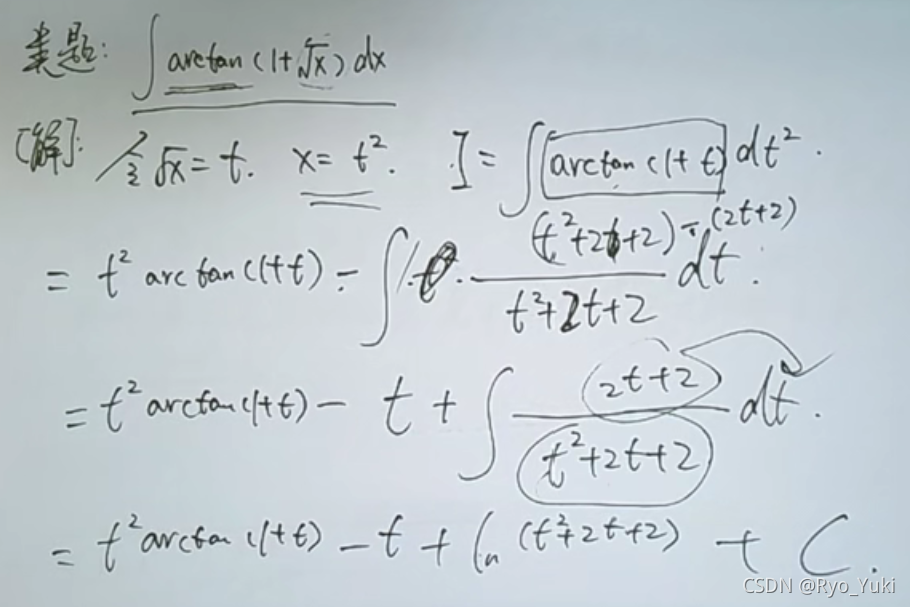 类题: ∫ arctan(1+√x) dx
[解]: 令√x = t. x = t². I = ∫ arctan(1+t) dt².
= t² arctan(1+t) - ∫ t² · ((t²+2t+2) - (2t+2))/(t²+2t+2) dt.
= t² arctan(1+t) - t + ∫ (2t+2)/(t²+2t+2) dt.
= t² arctan(1+t) - t + ln(t²+2t+2) + C.
CSDN @Ryo_Yuki